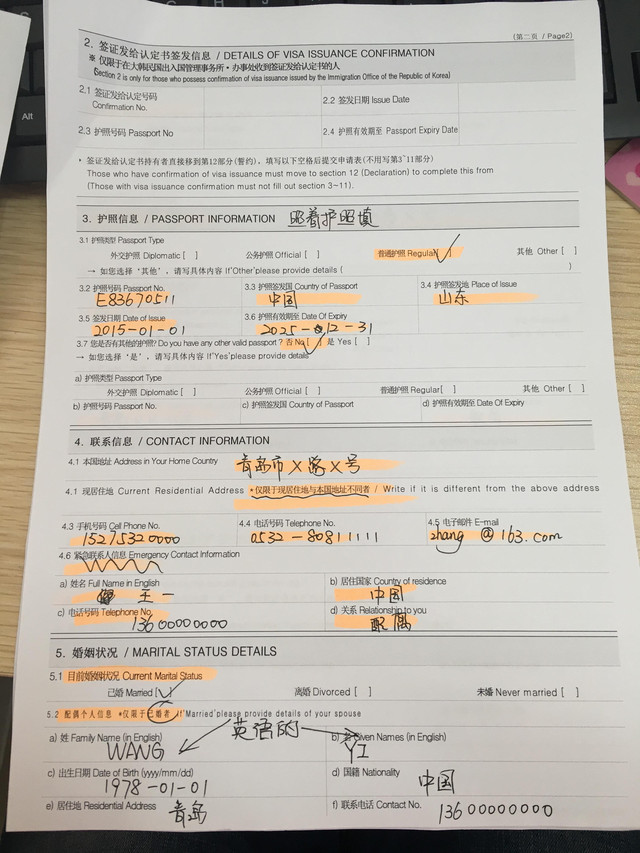 Alt
(第二页 / Page2)
2. 签证发给认定书签发信息 / DETAILS OF VISA ISSUANCE CONFIRMATION
※ 仅限于在大韩民国出入国管理事务所·办事处收到签证发给认定书的人
(Section 2 is only for those who possess confirmation of visa issuance issued by the Immigration Office of the Republic of Korea)
2.1 签证发给认定号码
Confirmation No.
2.2 签发日期 Issue Date
2.3 护照号码 Passport No
2.4 护照有效期至 Passport Expiry Date
* 签证发给认定书持有者直接移到第12部分(誓约), 填写以下空格后提交申请表(不用写第3~11部分)
Those who have confirmation of visa issuance must move to section 12 (Declaration) to complete this from
(Those with visa issuance confirmation must not fill out section 3~11).
3. 护照信息 / PASSPORT INFORMATION 照着护照填
3.1 护照类型 Passport Type
外交护照 Diplomatic [ ] 公务护照 Official [ ] 普通护照 Regular[✓] 其他 Other [ ]
→ 如您选择‘其他’, 请写具体内容 If‘Other’please provide details ( )
3.2 护照号码 Passport No. 3.3 护照签发国 Country of Passport 3.4 护照签发地 Place of Issue
E83670511 中国 山东
3.5 签发日期 Date of Issue 3.6 护照有效期至 Date Of Expiry
2015-01-01 2025-12-31
3.7 您是否有其他的护照? Do you have any other valid passport ? 否 No [✓] 是 Yes [ ]
→ 如您选择‘是’, 请写具体内容 If‘Yes’please provide details
a) 护照类型 Passport Type
外交护照 Diplomatic [ ] 公务护照 Official [ ] 普通护照 Regular[ ] 其他 Other [ ]
b) 护照号码 Passport No. c) 护照签发国 Country of Passport d) 护照有效期至 Date Of Expiry
4. 联系信息 / CONTACT INFORMATION
4.1 本国地址 Address in Your Home Country 青岛市X路X号
4.1 现居住地 Current Residential Address *仅限于现居住地与本国地址不同者 / Write if it is different from the above address
4.3 手机号码 Cell Phone No. 4.4 电话号码 Telephone No. 4.5 电子邮件 E-mail
15275320000 0532-80811111 zhang @163.com
4.6 紧急联系人信息 Emergency Contact Information
a) 姓名 Full Name in English 王一
b) 居住国家 Country of residence 中国
c) 电话号码 Telephone No. 13600000000
d) 关系 Relationship to you 配偶
5. 婚姻状况 / MARITAL STATUS DETAILS
5.1 目前婚姻状况 Current Marital Status
已婚 Married [✓] 离婚 Divorced [ ] 未婚 Never married [ ]
5.2 配偶个人信息 *仅限于已婚者 If‘Married’please provide details of your spouse
英语的
a) 姓 Family Name (in English) b) 名 Given Names (in English)
WANG YI
c) 出生日期 Date of Birth (yyyy/mm/dd) d) 国籍 Nationality
1978-01-01 中国
e) 居住地 Residential Address 青岛 f) 联系电话 Contact No. 13600000000